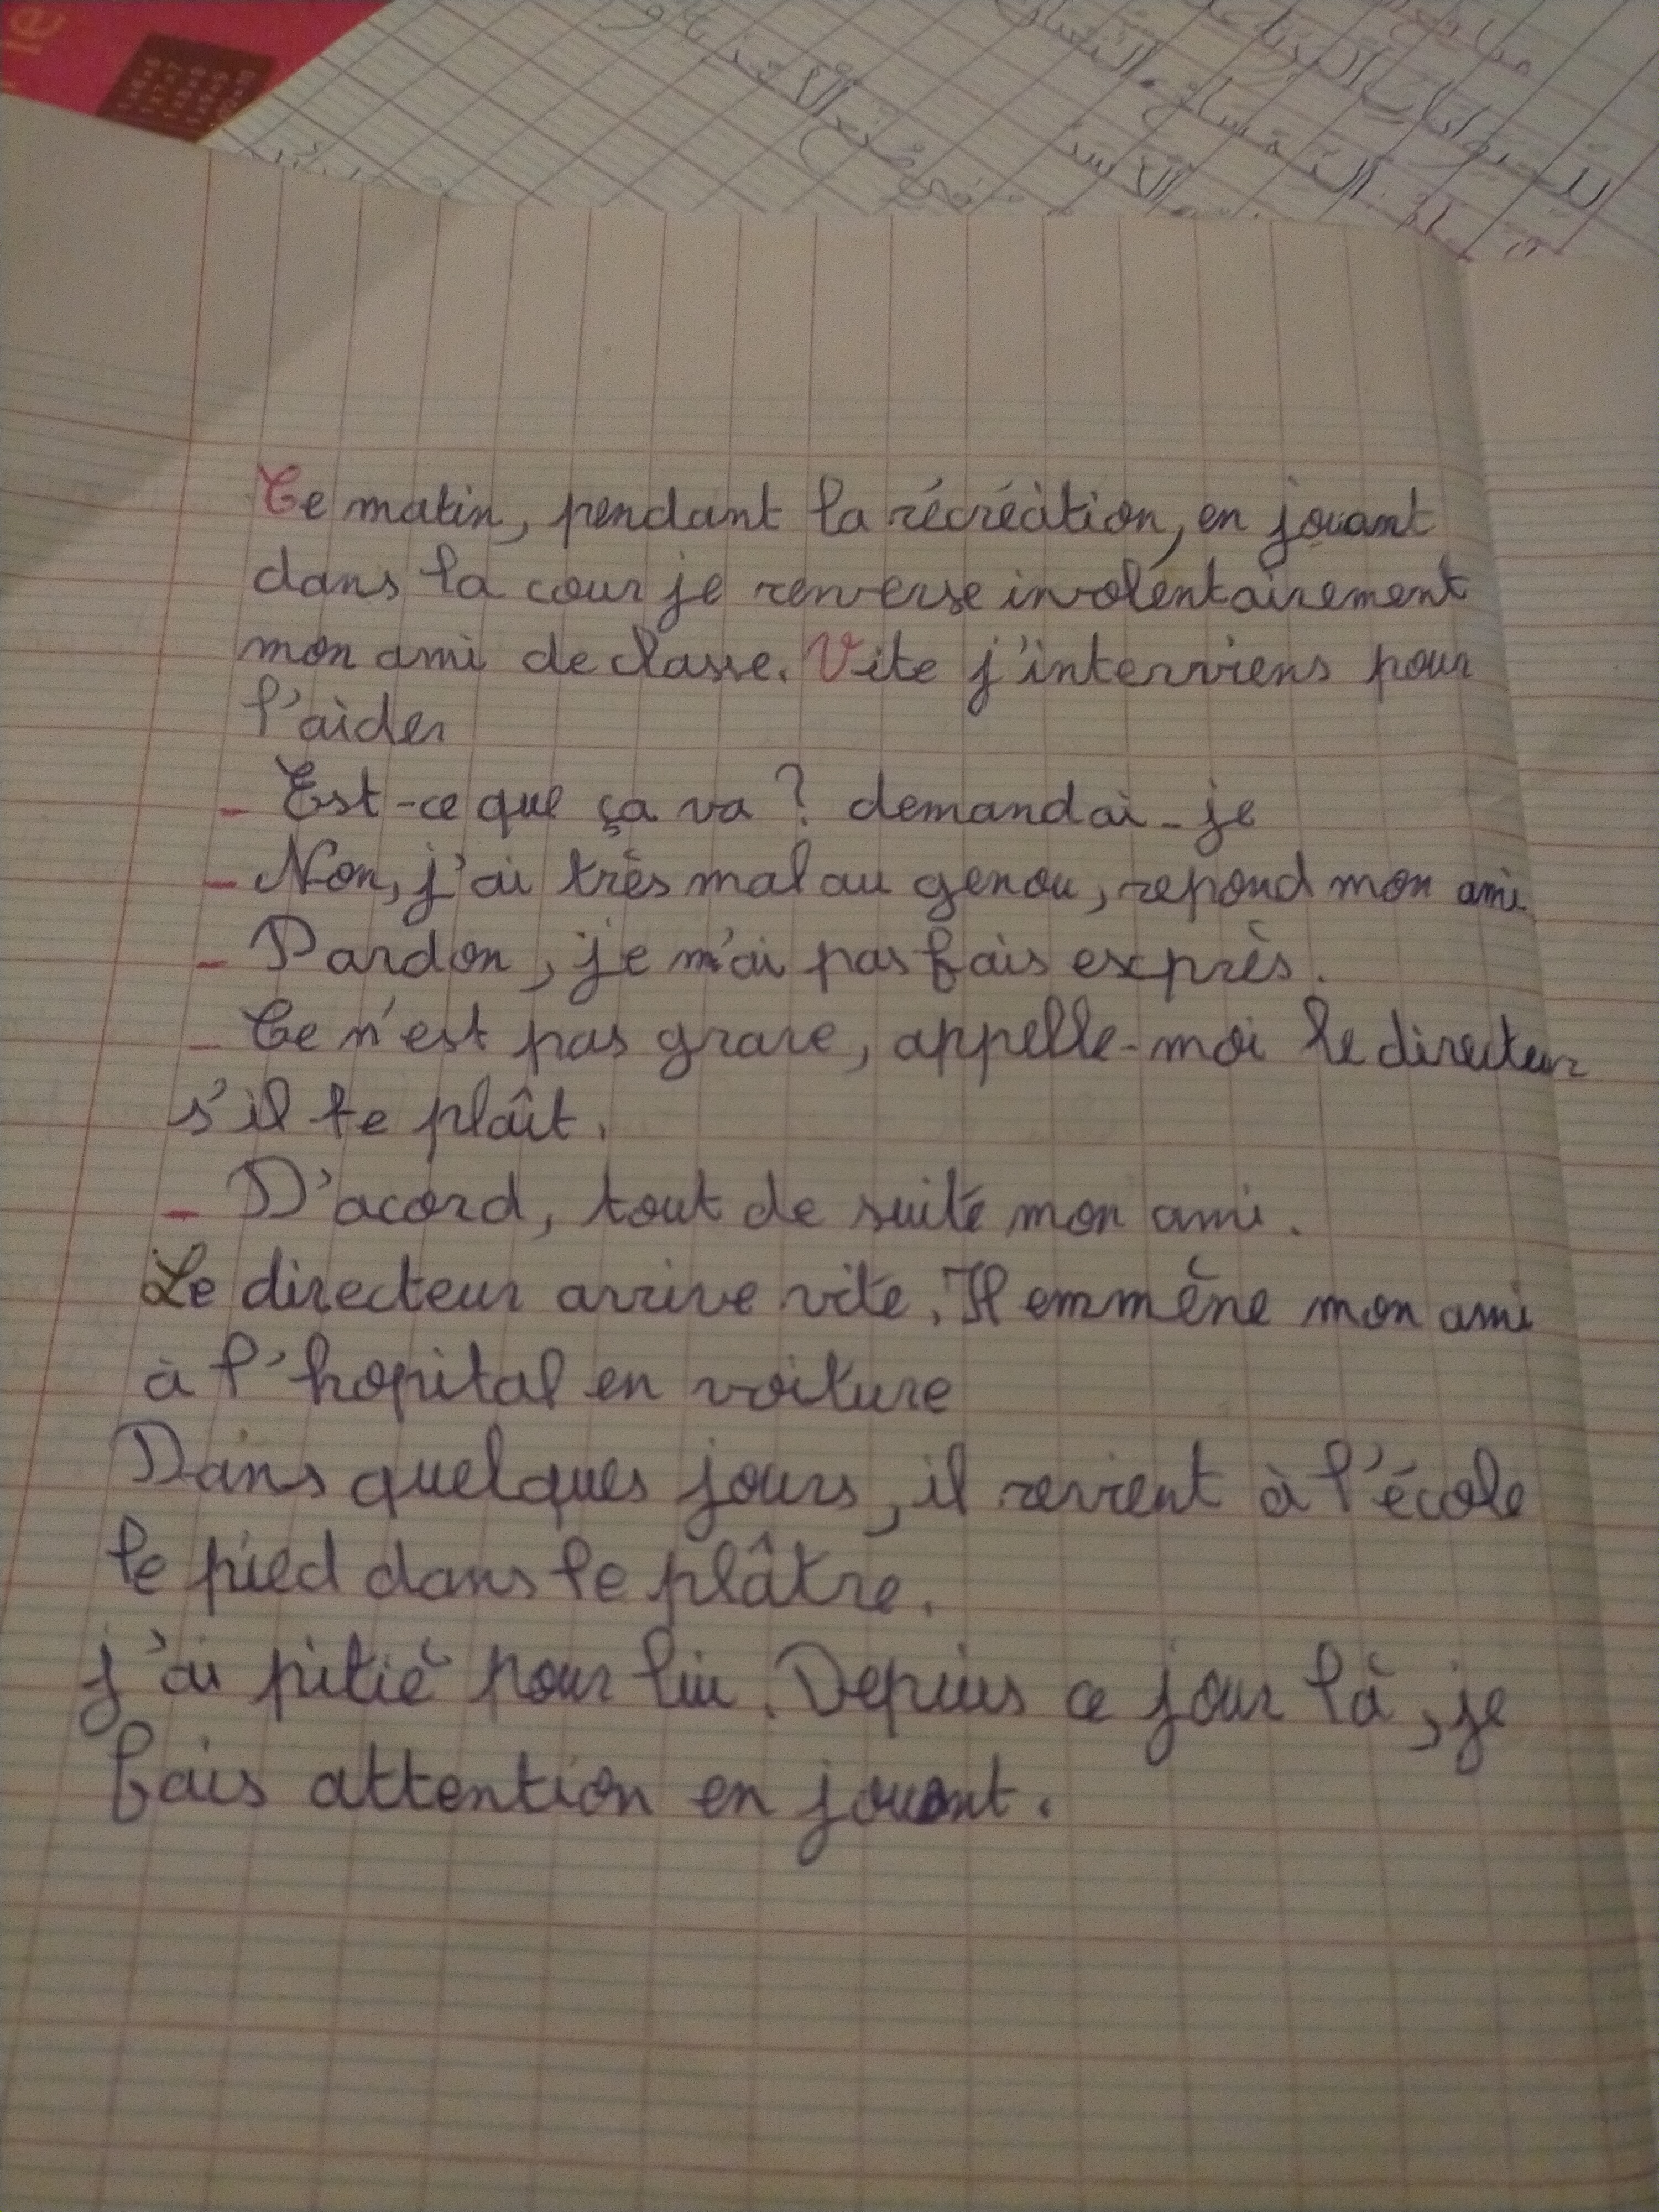 Ce matin, pendant la récréation, en jouant
dans la cour je renverse involentairement
mon ami de classe. Vite j'interviens pour
l'aider
- Est-ce que ça va ? demandai-je
- Non, j'ai très mal au genou, repond mon ami.
- Pardon, je n'ai pas fais exprès.
- Ce n'est pas grave, appelle-moi le directeur
s'il te plaît.
- D'acord, tout de suite mon ami.
Le directeur arrive vite. Il emmène mon ami
à l'hopital en voiture
Dans quelques jours, il revient à l'école
le pied dans le plâtre.
j'ai pitié pour lui. Depuis ce jour là, je
fais attention en jouant.